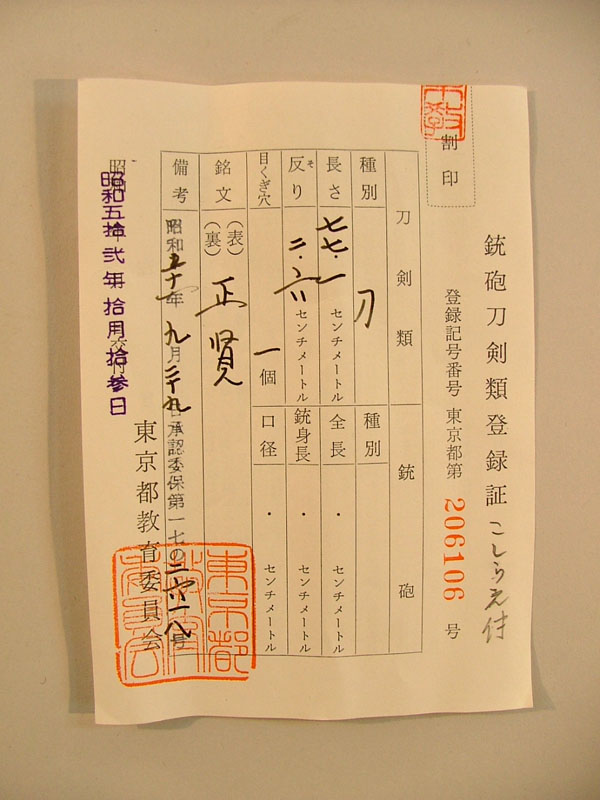 銃砲刀剣類登録証
こしらえ付
割印
登録記号番号 東京都第 206106 号
刀剣類
銃砲
種別 刀
種別
長さ 七七・一 センチメートル
全長 ・ センチメートル
反り そ 二・六 センチメートル
銃身長 ・ センチメートル
目くぎ穴 一個
口径 ・ センチメートル
銘文 (表) 正賢
(裏)
備考 昭和五十一年九月二十九日承認委保第一七の二六一八号
昭和五拾弐年拾月拾参日
交付
東京都教育委員会
東京都教育委員会